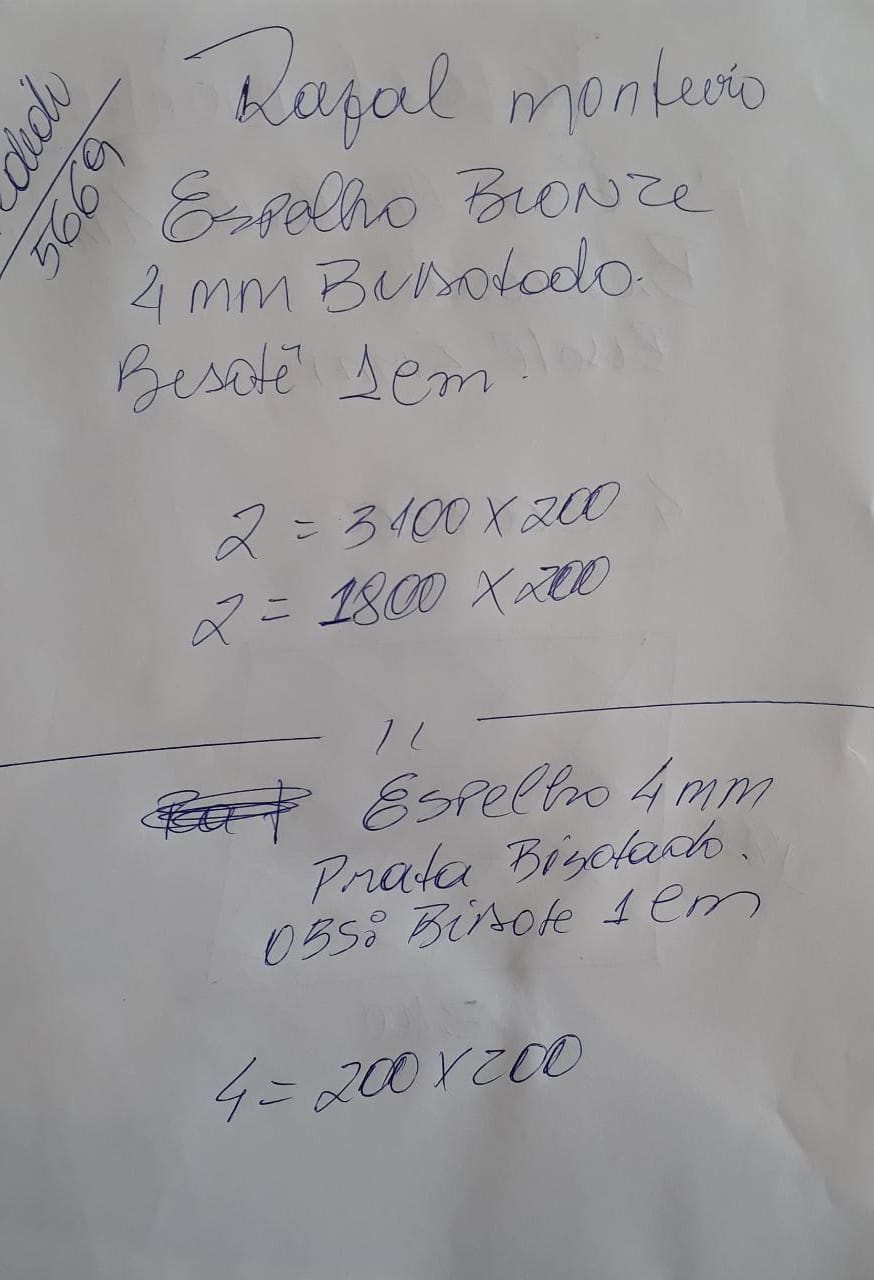 5669
Rafal monteiro
Espelho BRONZe
4 mm Bisotado.
Besotê 1 cm.
2 = 3100 X 200
2 = 1800 X 200
Espelho 4 mm
Prata Bisotado.
OBS: Bisote 1 cm
4 = 200 X 200